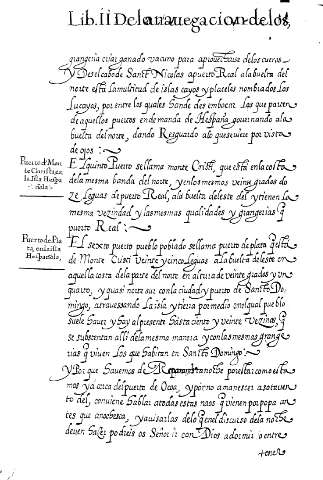 Lib. II De la nauegacion de los,
grangeria criar ganado vacuno para aprouecharse de los cueros
Y Desde cabo de Sanct Nicolas a puerto Real a la buelta del
norte esta la multitud de islas cayos y placeles nombrados los
lucayos, por entre los quales han de desembocar los que parten
de aquellos puertos en demanda de Hespaña gouernando a la
buelta del norte, dando Resguardo a lo que se viere por vista
de ojos:
Puerto de Mon
te Christi, que es
la isla Hespa
ñola.
El quinto Puerto se llama monte Cristi, que esta en la costa
de la misma banda del norte, y en los mesmos veinte grados do
ze leguas de puerto Real, a la buelta del este del y tienen la
mesma vezindad y las mesmas qualidades y grangerias q̃
puerto Real:
Puerto de Pla
ta, en la isla
Hespañola.
El sexto puerto pueblo poblado se llama puerto de plata q̃ esta
de Monte Cristi Veinte y cinco leguas a la buelta del este en
aquella costa de la parte del norte en altura de veinte grados y un
quarto, y quasi norte sur con la ciudad y puerto de Sancto Do-
mingo, atrauessando la isla y tierra por medio en el qual pueblo
suele hauer y hay al presente hasta ciento y veinte Vezinos, q̃
se substentan alli de la mesma manera y con las mesmas grange
rias q̃ viuen los que habitan en Sancto Domingo
Y Por que hauemos de
mos ya cerca del puerto de Ocoa, y por no amanecer a sotauen
to del, conuiene hablar a todas estas naos q̃ vienen por popa an
tes que anochesca, y auisarlas de lo q̃ en el discurso de la noche
deuen hazer podreis os Señor ir con Dios a dormir o entre
tener